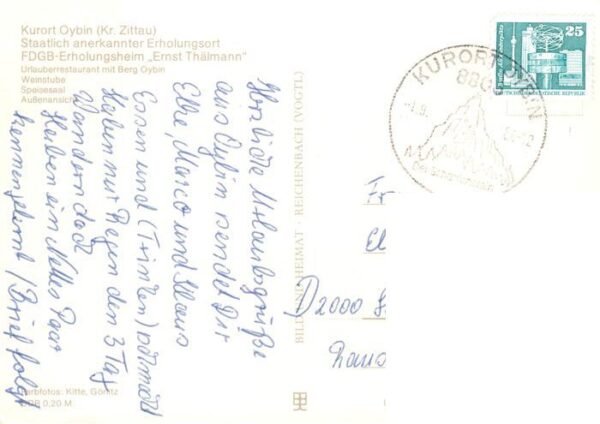 Kurort Oybin (Kr. Zittau)
Staatlich anerkannter Erholungsort
FDGB-Erholungsheim „Ernst Thälmann"
Urlauberrestaurant mit Berg Oybin
Weinstube
Speisesaal
Außenansicht
Herzliche Urlaubsgrüße
aus Oybin sendet Dir
Elke, Marco und Klaus
Essen und (Trinken) normal
Haben nur Regen den 3 Tag
Wandern doch
Haben ein Nettes Paar
kennengelernt / Brief folgt
Farbfotos: Kitte, Görlitz
DDR 0,20 M
BILD UND HEIMAT · REICHENBACH (VOGTL)
25
DEUTSCHE DEMOKRATISCHE REPUBLIK
KURORT OYBIN
Der Scharfenstein
Fr
El
D2000